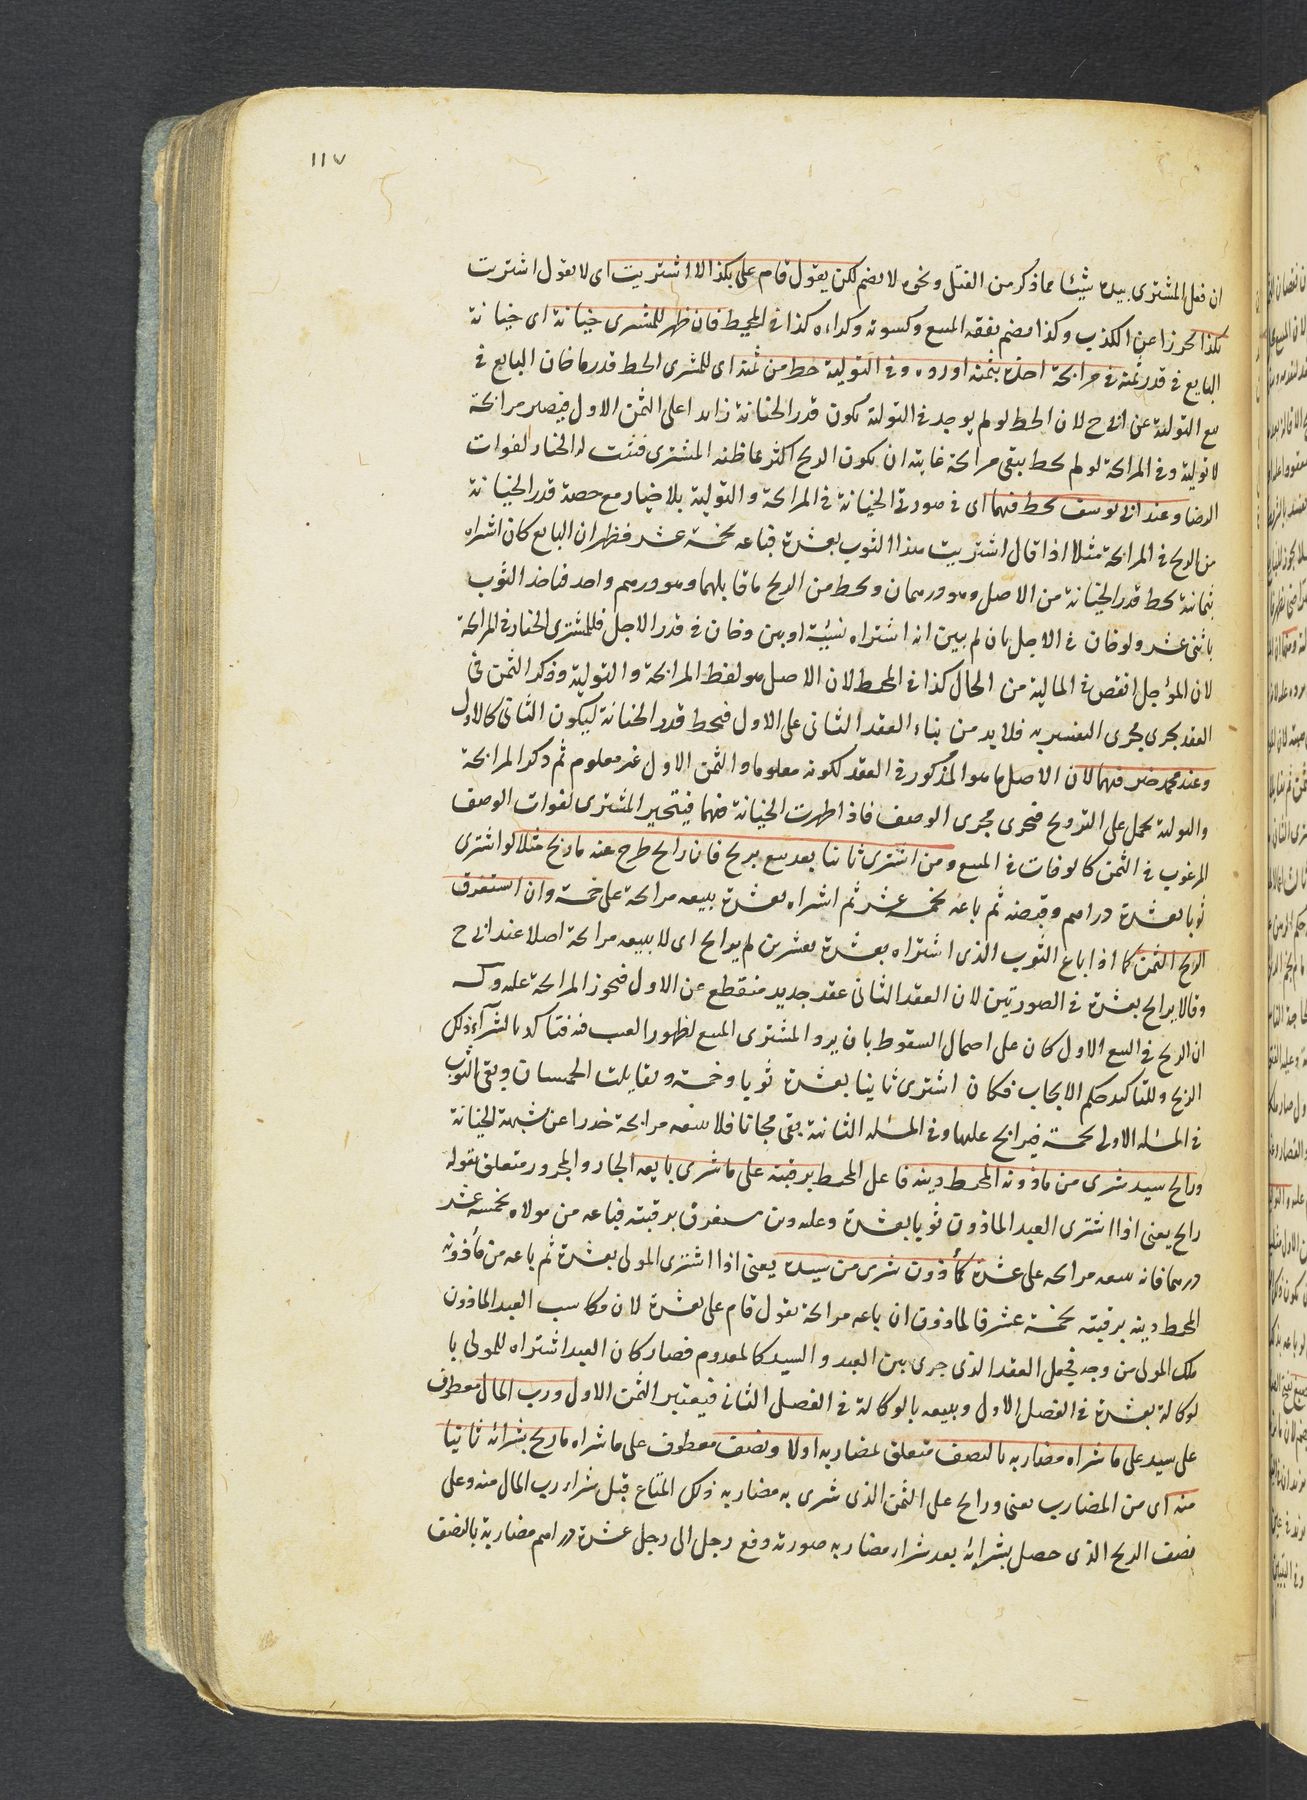 ١١٧
ان فعل المشترى بيده شيئا مما ذكر من الفتل ونحوه لا يضم لكن يقول قام على بكذا لا اشتريت اى لا يقول اشتريت
بكذا تحرزا عن الكذب وكذا يضم نفقه المبيع وكسوته وكراءه كذا فى المحيط فان ظهر للمشترى خيانة اى خيانة
البايع فى قدر ثمنه فى مرابحة اخذه بثمنه او رده وفى التولية حط من ثمنه اى للمشترى الحط قدر ما خان البايع فى
بيع التولية عن ابى ح لان الحط لو لم يوجد فى التولية تكون قدر الخيانة زائدا على الثمن الاول فيصير مرابحة
لا تولية وفى المرابحة لو لم يحط يبقى مرابحة غايته ان يكون الربح اكثر مما ظنه المشترى فيثبت له الخيار لفوات
الرضا وعند ابى يوسف يحط فيهما اى فى صورتى الخيانة فى المرابحة والتولية بلا خيار مع حصة قدر الخيانة
من الربح فى المرابحة مثلا اذا قال اشتريت هذا الثوب بعشرة فباعه بخمسة عشر فظهر ان البايع كان اشراه
بثمانية يحط قدر الخيانة من الاصل وهو درهمان ويحط من الربح ما قابلهما وهو درهم واحد فياخذ الثوب
باثنى عشر ولو خان فى الاجل بان لم يبين انه اشتراه نسيئة او بين وخان فى قدر الاجل فللمشترى الخيار فى المرابحة
لان المؤجل انقص فى المالية من الحال كذا فى المحيط لان الاصل هو لفظ المرابحة والتولية وذكر الثمن فى
العقد يجرى مجرى التفسير به فلا بد من بناء العقد الثانى على الاول فيحط قدر الخيانة ليكون الثانى كالاول
وعند محمد خير فيهما لان الاصل ما هو المذكور فى العقد لكونه معلوما والثمن الاول غير معلوم ثم ذكر المرابحة
والتولية يحمل على الترويج فيجرى مجرى الوصف فاذا ظهرت الخيانة فيهما فيتخير المشترى لفوات الوصف
المرغوب فى الثمن كما لو فات فى المبيع ومن اشترى ثانيا بعد بيع بربح فان رابح طرح عنه ما ربح مثلا لو اشترى
ثوبا بعشرة دراهم وقبضه ثم باعه بخمسة عشر ثم اشراه بعشرة يبيعه مرابحة على خمسة وان استغرق
الربح الثمن كما اذا باع الثوب الذى اشتراه بعشرة بعشرين لم يرابح اى لا يبيعه مرابحة اصلا عند ابى ح
وقالا يرابح بعشرة فى الصورتين لان العقد الثانى عقد جديد منقطع عن الاول فيجوز المرابحة عليه وله
ان الربح فى البيع الاول كان على احتمال السقوط بان يرد المشترى المبيع لظهور العيب فيه فتاكد بالشرآء ذلك
الربح وللتاكيد حكم الايجاب فكان اشترى ثانيا بعشرة ثوبا وخمسة وتقابلت الخمستان وبقى الثوب
فى المسئلة الاولى بخمسة فيرابح عليها وفى المسئلة الثانية بقى مجانا فلا يبيعه مرابحة حذرا عن شبهة الخيانة
ورابح سيد شرى من ماذونه المحيط دينه فاعل المحيط برقبته على ما شرى بايعه الجار والمجرور متعلق بقوله
رابح يعنى اذا اشترى العبد الماذون ثوبا بعشرة وعليه دين يستغرق برقبته فباعه من مولاه بخمسة عشر
درهما فانه يبيعه مرابحة على عشرة كمأذون شرى من سيده يعنى اذا اشترى المولى بعشرة ثم باعه من مأذونه
المحيط دينه برقبته بخمسة عشر فالماذون ان باعه مرابحة يقول قام على بعشرة لان مكاسب العبد الماذون
ملك المولى من وجه فجعل العقد الذى جرى بين العبد والسيد كالمعدوم فصار كان العبد اشتراه للمولى با
لوكالة بعشرة فى الفصل الاول وبيعه بالوكالة فى الفصل الثانى فيعتبر الثمن الاول ورب المال معطوف
على سيد على ما شراه مضاربه بالنصف متعلق لمضاربه اولا ونصف معطوف على ما شراه ما ربح بشرائه ثانيا
منه اى من المضارب يعنى ورابح على الثمن الذى شرى به مضاربه ذلك المتاع قبل شراء رب المال منه وعلى
نصف الربح الذى حصل بشرائه بعد شراء مضاربه صورته دفع رجل الى رجل عشرة دراهم مضاربة بالنصف